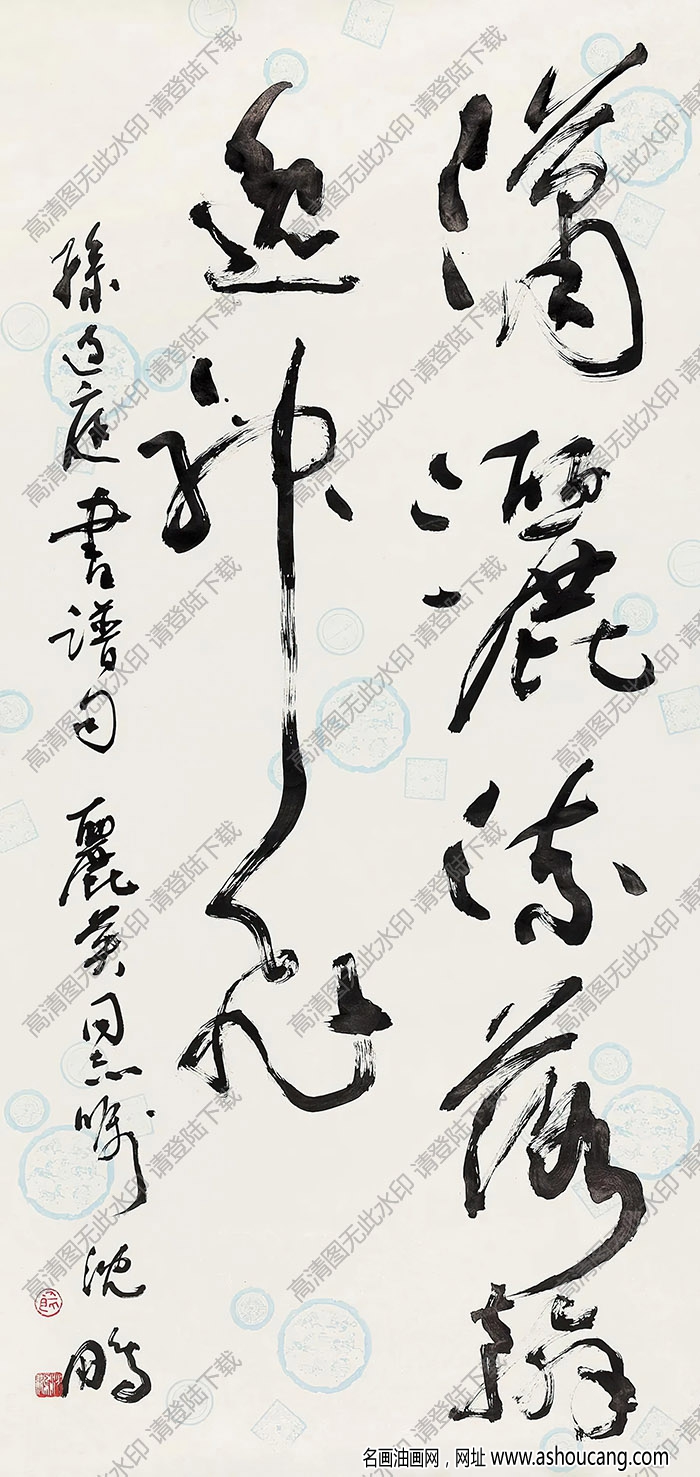 瀟灑流落翰
逸神飛
孫過庭書譜句 麗英同志囑 沈鵬
高清图无此水印 请登陆下载
名画油画网，网址 www.ashoucang.com